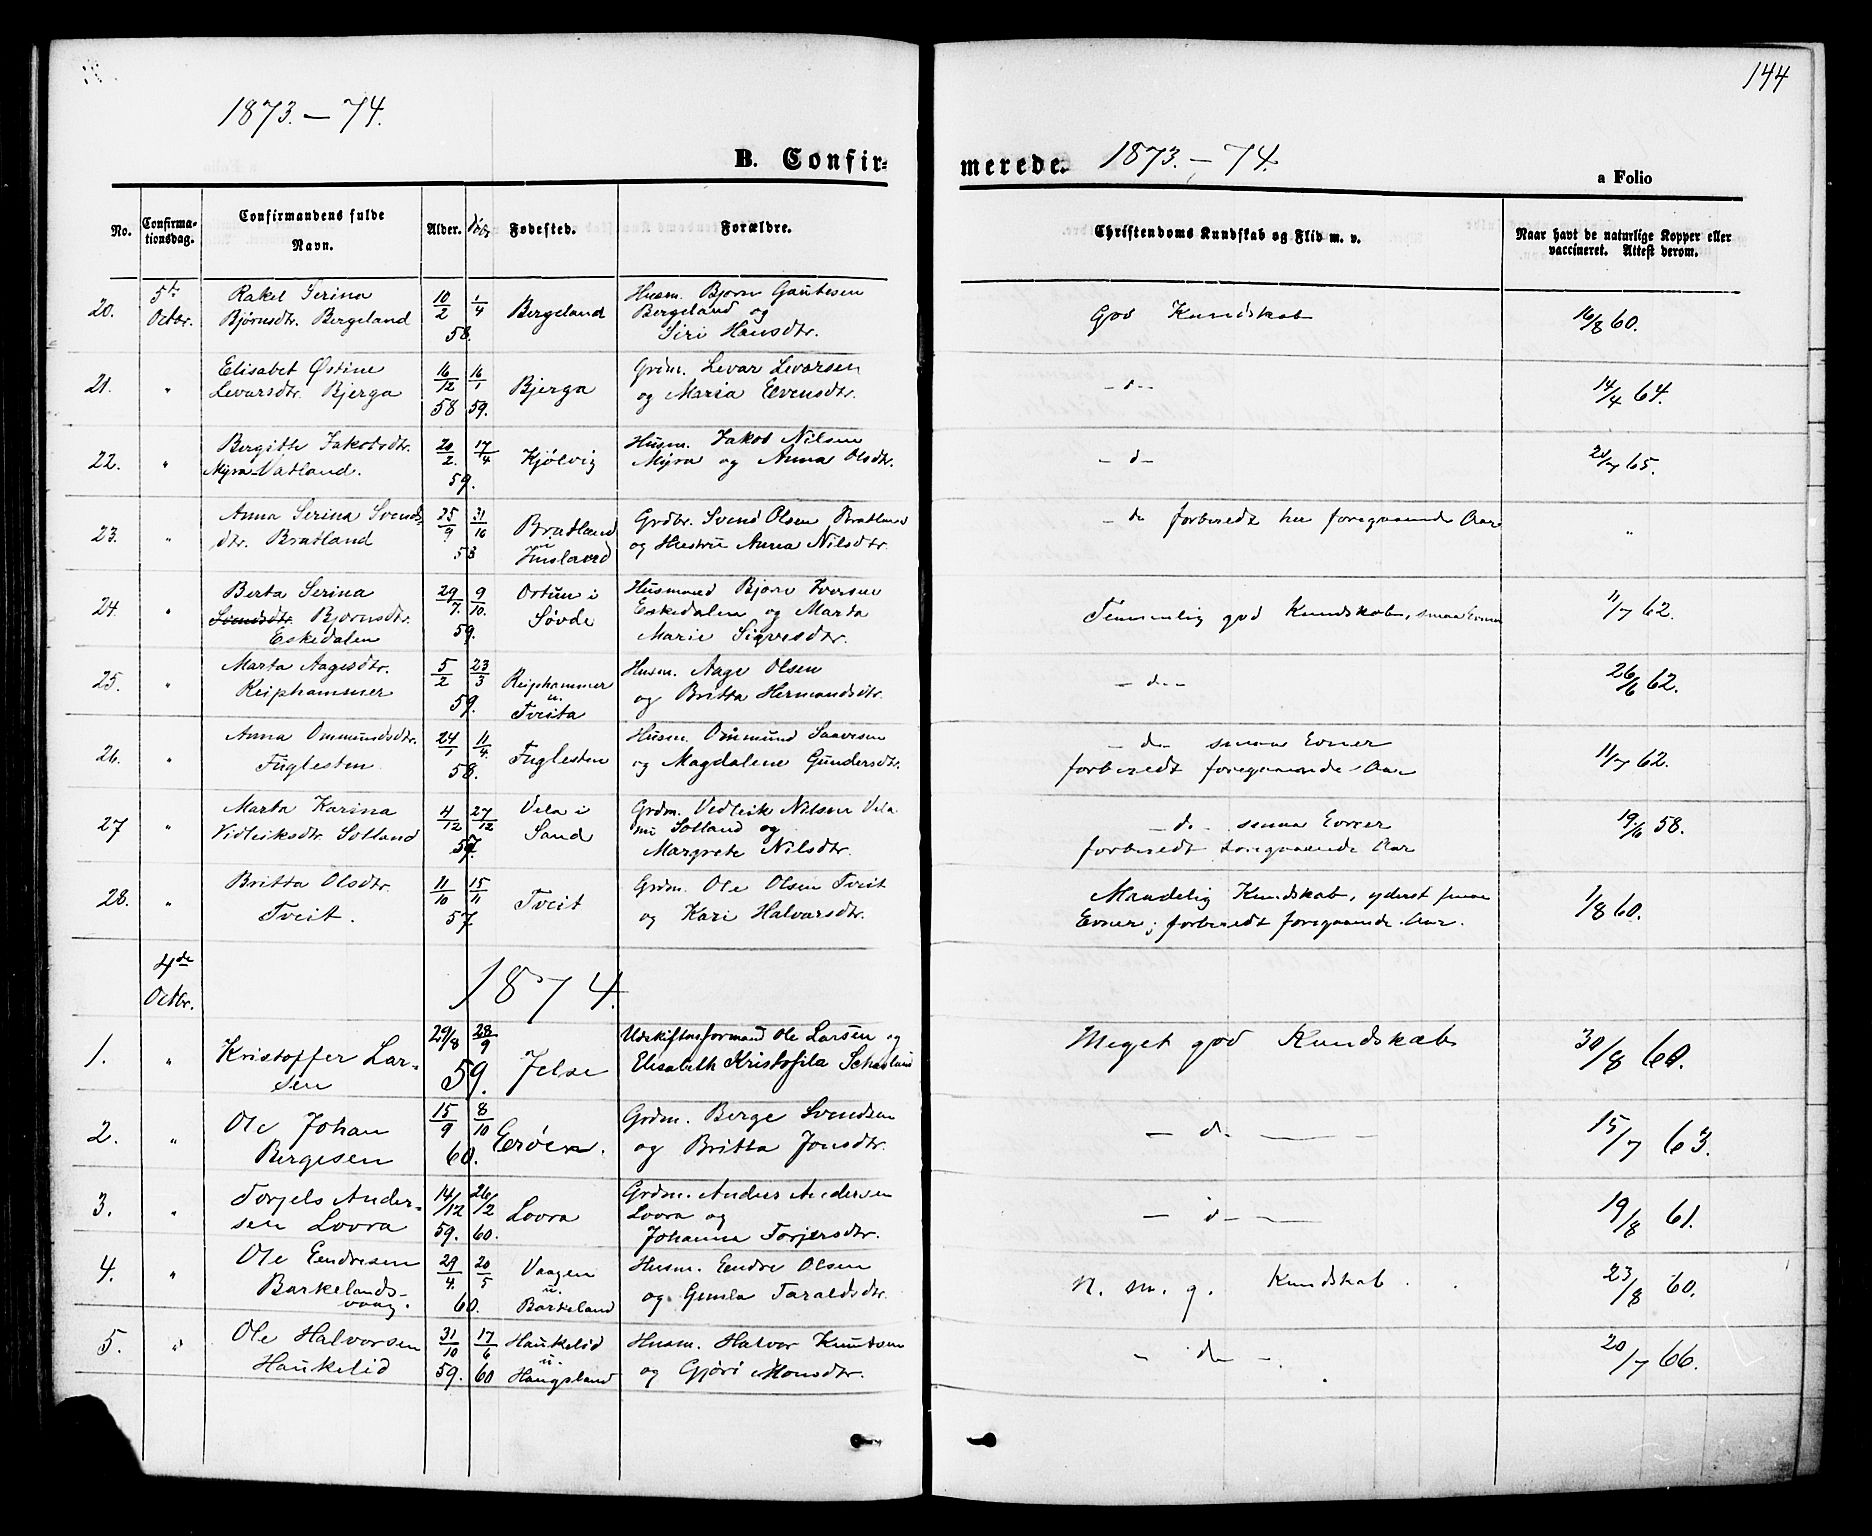 144
1873. — 74.
1873. — 74.
B. Confir-
merede.
a Folio
No.
Confirma-
tionsdag.
Confirmandens fulde
Navn.
Alder.
Fødested.
Forældre.
Christendoms Kundskab og Flid m. v.
Naar havt de naturlige Kopper eller
vaccineret. Attest derom.
20. 5te Octbr. Rakel Serina
Bjørnsdtr. Bergeland
10/2 1/4 58. Bergeland
Husm. Bjørn Gautesen
Bergeland og
Siri Hansdtr.
God Kundskab
16/8 60.
21. " Elisabet Østine
Levarsdtr. Bjerga
16/12 58 16/1 59. Bjerga
Grdm. Levar Levarsen
og Maria Evensdtr.
- d -
14/4 64.
22. " Bergitte Jakobsdtr.
Myra-Vatland.
20/2. 17/4 59. Kjölvig
Husm. Jakob Nilsen
Myra og Anna Olsdtr.
- d -
65.
23. " Anna Serina Svends-
dtr. Bratland
25/9 31/10 53 Bratland
i
Grdbr. Svend Olsen Bratland
og Hustru Anna Nilsdtr.
- do forberedt her foregaaende Aar
"
24. " Berta Serina
Svendsdtr. Bjørnsdtr.
Eskedalen
29/7. 9/10. 59. Ostun i
Søvde
Husmand Bjørn Iversen
Eskedalen og Marta
Marie Sigvesdtr.
Temmelig god Kundskab, smaa Evner
11/7 62.
25. " Marta Aagesdtr.
Reiphammer
5/2 23/3 59. Reiphammer
u.
Tveita
Husm. Aage Olsen
og Britta Hermandsdtr.
- d -
26/6 62.
26. " Anna Ommundsdtr.
Fuglesten
24/1 11/4 58. Fuglesten
Husm. Ommund Saavesen
og Magdalene Gundersdtr.
- d - smaa Evner
forberedt foregaaende Aar
11/7 62.
27 " Marta Karina
Vidleiksdtr. Sotland
4/12 27/12 57. Vela i
Sand
Grdm. Vedleik Nilsen Vela
nu Sotland og
Margrete Nilsdtr.
- d - smaa Evner
forberedt foregaaende Aar
19/6 58.
28. " Britta Olsdtr.
Tveit.
11/10 15/11 57 Tveit
Grdm. Ole Olsen Tveit
og Kari Halvarsdtr.
Maadelig Kundskab, yderst smaa
Evner; forberedt foregaaende Aar.
1/8 60.
4de
Octbr.
1874.
1. " Kristoffer Lar-
sen
29/8 28/9 59. Jelse
Udskiftnsformand Ole Larsen og
Elisabeth Kristofila
Meget god Kundskab
30/8 60.
2. " Ole Johan
Bergesen
15/9 8/10 60. Eröen.
Grdm. Berge Svendsen
og Britta Jonsdtr.
- d -
15/7 63.
3. " Torjels Ander-
sen Lovra
14/12 59. 26/2 60. Lovra
Grdm. Anders Andersen
Lovra og
Johanna Torjersdtr.
- d -
19/8 61.
4. " Ole Eendresen
Barkelands-
vaag.
29/4. 20/5 60. Vaagen
u.
Barkeland
Husm. Eendre Olsen
og Gunla Taraldsdtr.
N. m. g. Kundskab.
23/8 60.
5. " Ole Halvorsen
Haukelid
31/10 59. 17/6 60 Haukelid
u.
Haugsland
Husm. Halvor Knutsen
og Gjöri Monsdtr.
- do -
20/7 66.